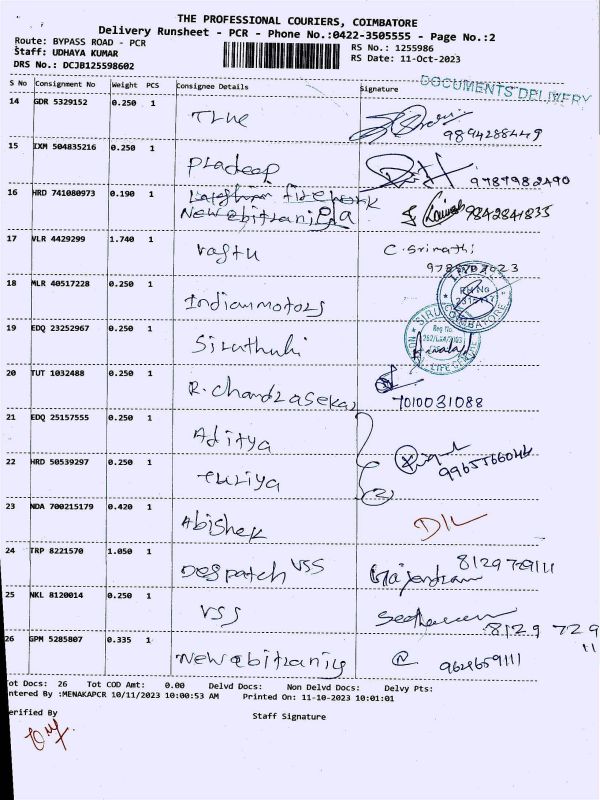 THE PROFESSIONAL COURIERS, COIMBATORE
Delivery Runsheet - PCR - Phone No.:0422-3505555 - Page No.:2
Route: BYPASS ROAD - PCR
RS No.: 1255986
Staff: UDHAYA KUMAR
RS Date: 11-Oct-2023
DRS No.: DCJB125598602
DOCUMENTS DELIVERY
S No Consignment No Weight PCS Consignee Details Signature
14 GDR 5329152 0.250 1 True
9894288449
15 IXM 504835216 0.250 1 Pradeep
9787982490
16 HRD 741080973 0.190 1 fire work
New 9842841833
17 VLR 4429299 1.740 1 vastu C. Srimathi
18 MLR 40517228 0.250 1 Indian motors
19 EDQ 23252967 0.250 1 Siruthuli
COIMBATORE
20 TUT 1032488 0.250 1 R. Chandrasekar 7010031088
21 EDQ 25157555 0.250 1 Aditya
22 HRD 50539297 0.250 1 Turiya
2
23 NDA 700215179 0.420 1 Abishek D/L
24 TRP 8221570 1.050 1 Despatch VSS Gajendran
25 NKL 8120014 0.250 1 VSS
8129 729
11
26 GPM 5285807 0.335 1 New
Tot Docs: 26 Tot COD Amt: 0.00 Delvd Docs: Non Delvd Docs: Delvy Pts:
ntered By :MENAKAPCR 10/11/2023 10:00:53 AM Printed On: 11-10-2023 10:01:01
erified By
Staff Signature